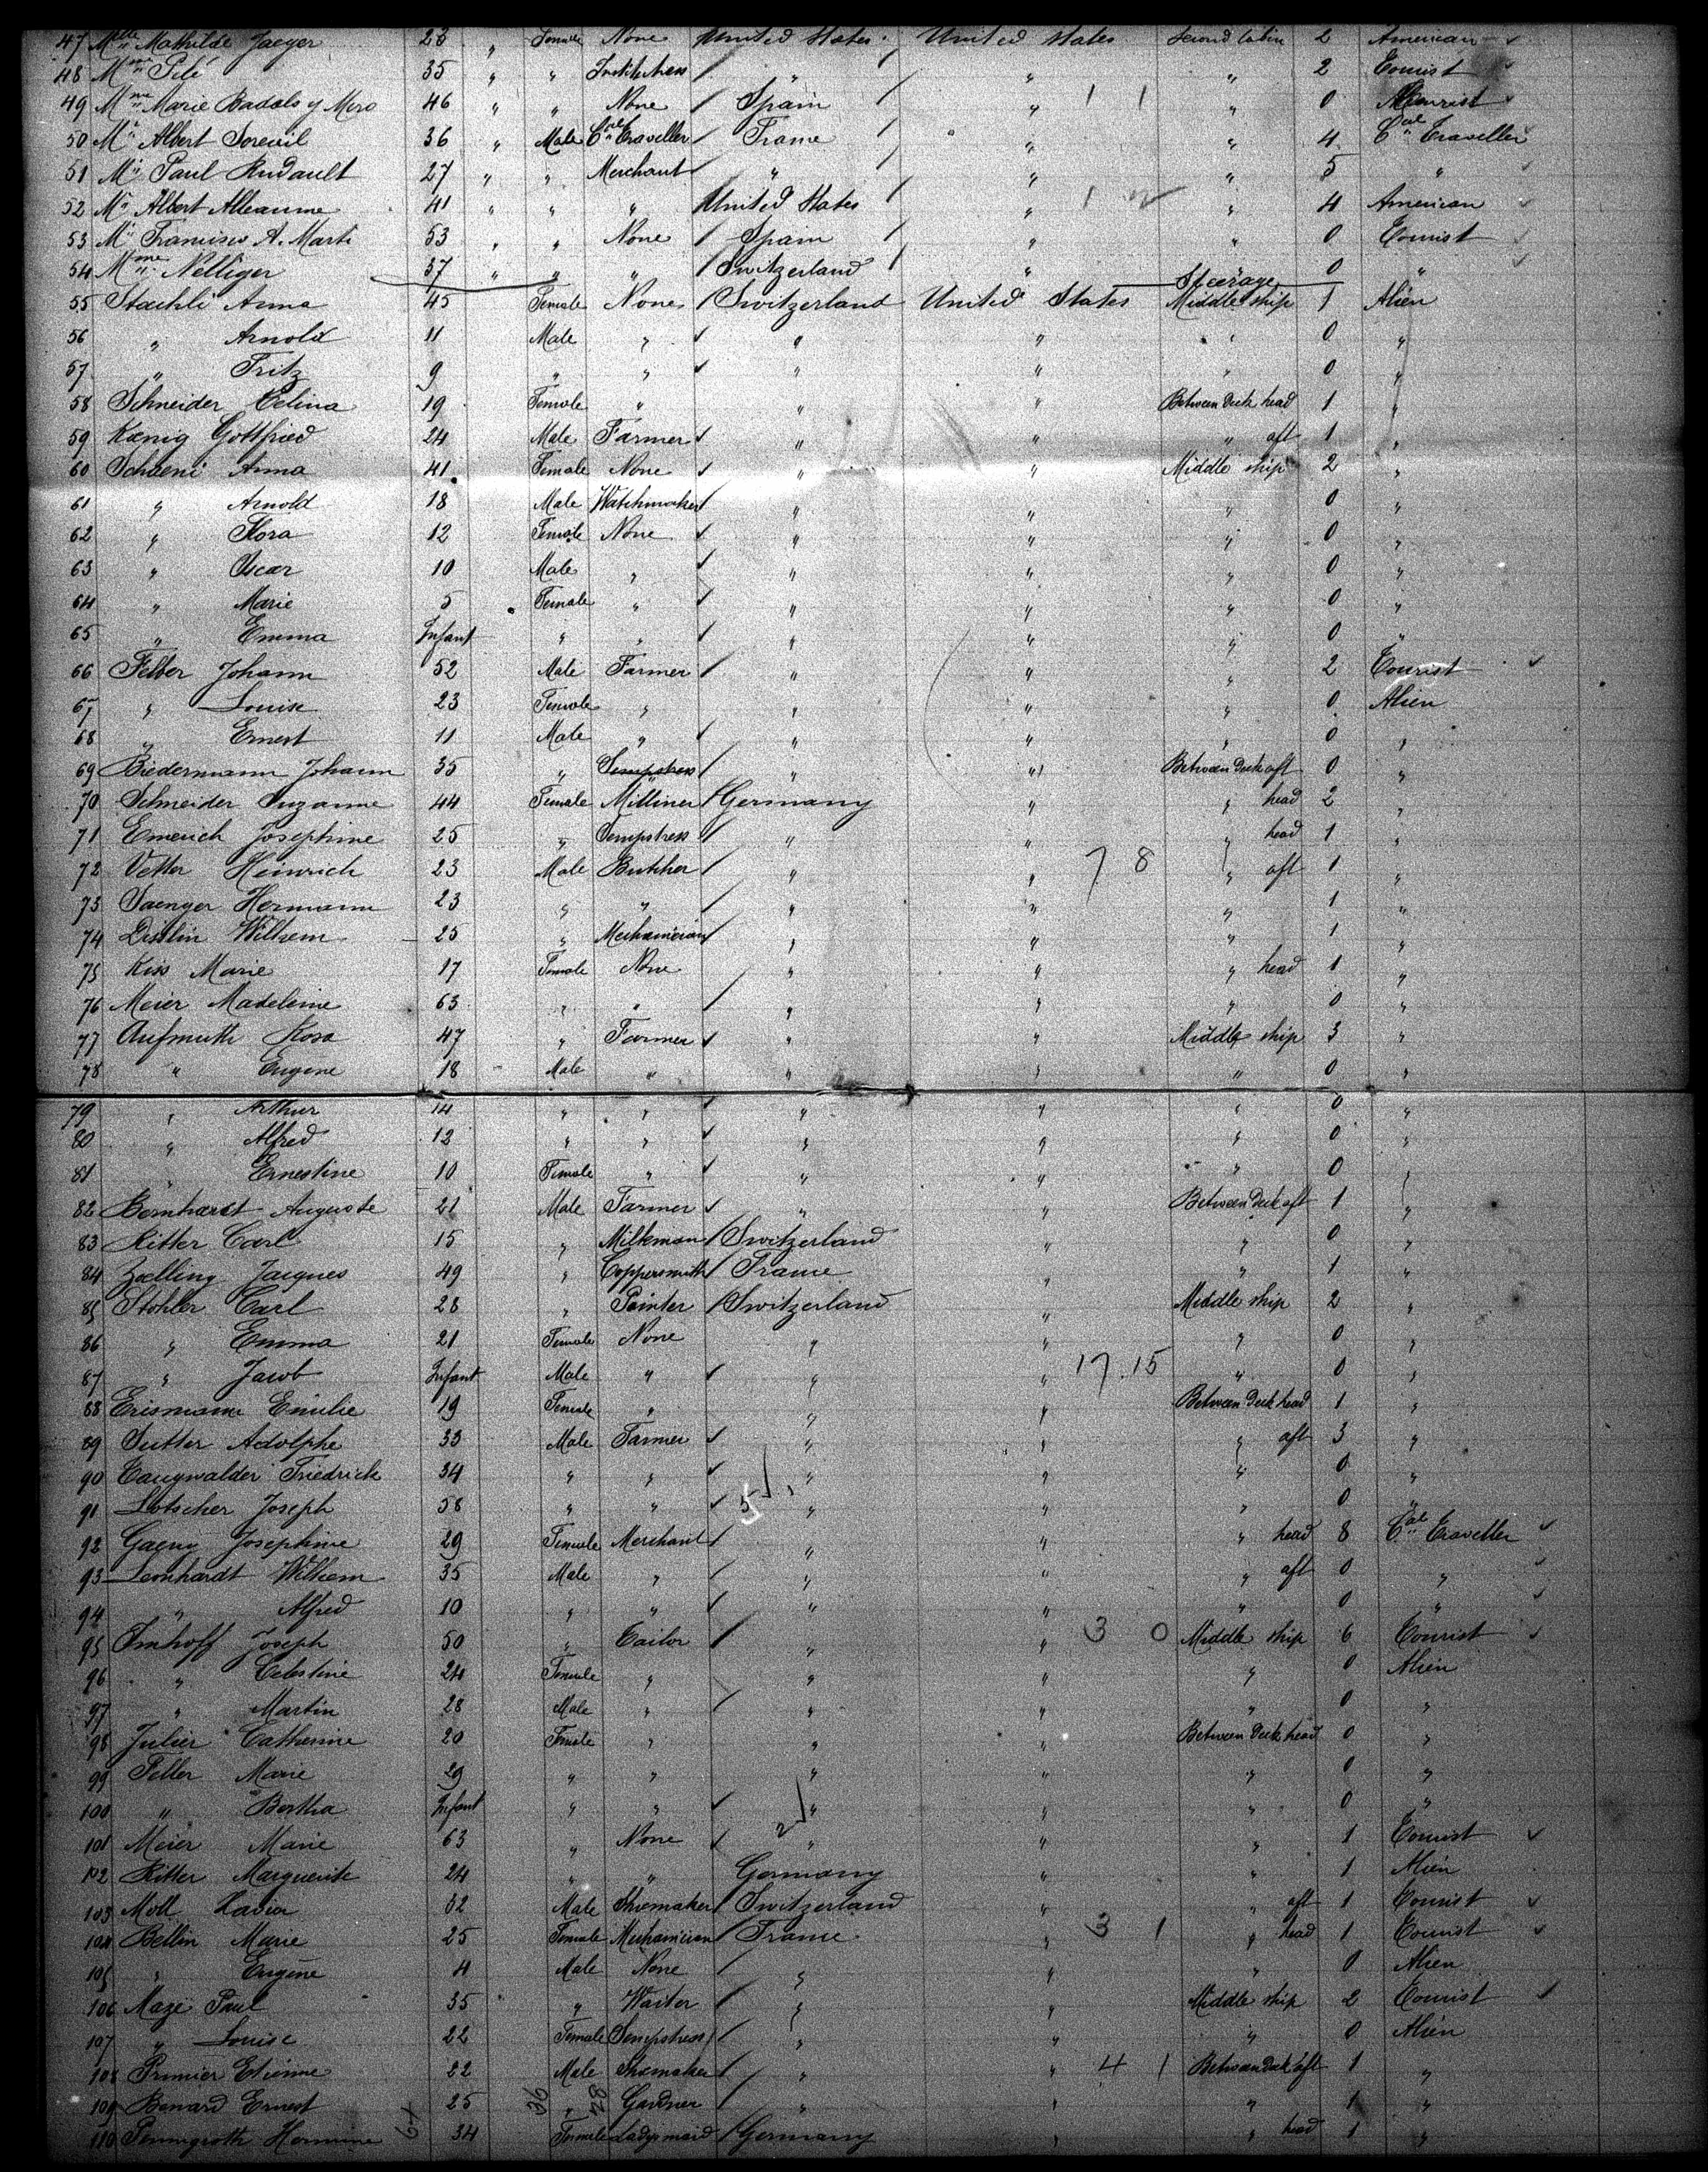 47 Melle Mathilde Jaeger 23 " Female None United States United States Second Cabin 2 American
48 Mme Pilé 35 " " Institutress " " " 2 Tourist
49 Mme Marie Badals y Mero 46 " " None Spain " 1 1 " 0 Tourist
50 Mr Albert Soreuil 36 " Male Cal Traveller France " " 4 Cal Traveller
51 Mr Paul Rudault 27 " " Merchant " " " 5 "
52 Mr Albert Alleaume 41 " " " United States " 1 2 " 4 American
53 Mr Francisco A. Marti 53 " " None Spain " " 0 Tourist
54 Mme Nelliger 37 " " " Switzerland " 0 "
Steerage
55 Staehli Anna 45 Female None Switzerland United States Middle ship 1 Alien
56 " Arnold 11 Male " " " " 0 "
57 " Fritz 9 " " " " " 0 "
58 Schneider Celina 19 Female " " " Between Deck head 1 "
59 Kœnig Gottfried 24 Male Farmer " " " aft 1 "
60 Schaeni Anna 41 Female None " " Middle ship 2 "
61 " Arnold 18 Male Watchmaker " " " 0 "
62 " Flora 12 Female None " " " 0 "
63 " Oscar 10 Male " " " " 0 "
64 " Marie 5 Female " " " " 0 "
65 " Emma Infant " " " " " 0 "
66 Felber Johann 52 Male Farmer " " " 2 Tourist
67 " Louise 23 Female " " " " 0 Alien
68 " Ernest 11 Male " " " " 0 "
69 Biedermann Johann 35 " " " Between Deck aft 0 "
70 Schneider Suzanne 44 Female Milliner Germany " " head 2 "
71 Emerich Josephine 25 " Sempstress " " " head 1 "
72 Vetter Heinrich 23 Male Butcher " " 7 8 " aft 1 "
73 Saenger Hermann 23 " " " " " 1 "
74 Disslin Wilhem 25 " Mechanician " " " 1 "
75 Kiss Marie 17 Female None " " " head 1 "
76 Meier Madeleine 63 " " " " " 0 "
77 Aufmuth Rosa 47 " Farmer " " Middle ship 3 "
78 " Eugene 18 Male " " " " 0 "
79 " Arthur 14 " " " " " 0 "
80 " Alfred 12 " " " " " 0 "
81 " Ernestine 10 Female " " " " 0 "
82 Bernhardt Auguste 21 Male Farmer " " Between Deck aft 1 "
83 Ritter Carl 15 " Milkman Switzerland " " 0 "
84 Zœlling Jacques 49 " Coppersmith France " " 1 "
85 Stohler Carl 28 " Painter Switzerland " Middle ship 2 "
86 " Emma 21 Female None " " " 0 "
87 " Jacob Infant Male " " " 17.15 " 0 "
88 Erismann Emilie 19 Female " " " Between Deck head 1 "
89 Sutter Adolphe 33 Male Farmer " " " aft 3 "
90 Taugwalder Friedrich 34 " " " " " 0 "
91 Lotscher Joseph 58 " " 5 " " " 0 "
92 Gaeny Josephine 29 Female Merchant " " " head 8 Cal Traveller
93 Leonhardt Wilhem 35 Male " " " " aft 0 "
94 " Alfred 10 " " " " " 0 "
95 Imhoff Joseph 50 " Tailor " " 3 0 Middle ship 6 Tourist
96 " Celestine 24 Female " " " " 0 Alien
97 " Martin 28 Male " " " " 0 "
98 Julier Catherine 20 Female " " " Between Deck head 0 "
99 Feller Marie 29 " " " " " 0 "
100 " Bertha Infant " " " " " 0 "
101 Meier Marie 63 " None 2 " " " 1 Tourist
102 Ritter Marguerite 24 " " Germany " " 1 Alien
103 Moll Xavier 62 Male Shoemaker Switzerland " " aft 1 Tourist
104 Bellin Marie 25 Female Mechanician France " 3 1 " head 1 Tourist
105 " Eugène 4 Male None " " " 0 Alien
106 Mazé Paul 35 " Waiter " " Middle ship 2 Tourist
107 " Louise 22 Female Sempstress " " " 0 Alien
108 Prunier Etienne 22 Male Shoemaker " " 4 1 Between Deck aft 1 "
109 Benard Ernest 25 " Gardner " " " 1 "
110 Pennigroth Hermine 34 Female Ladys maid Germany " " head 1 "
64 36 28